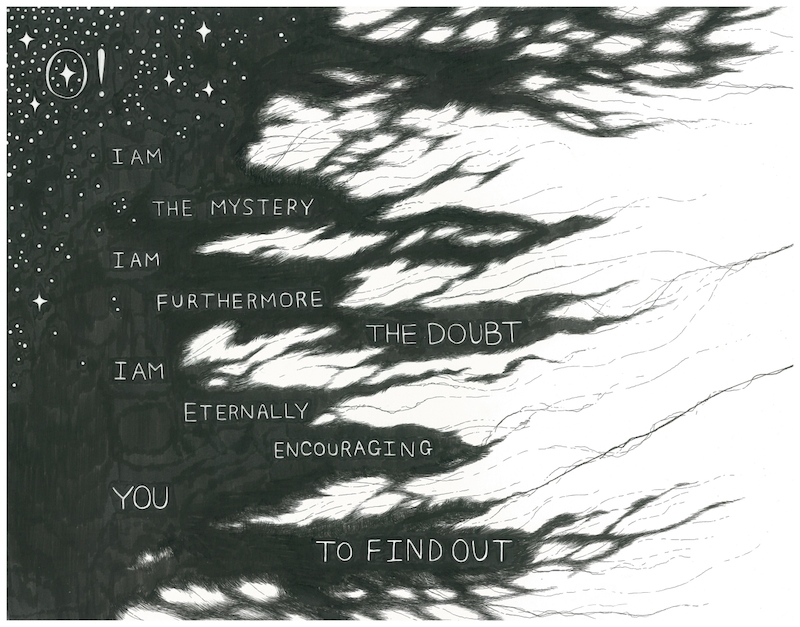 O!
I AM
THE MYSTERY
I AM
FURTHERMORE
THE DOUBT
I AM
ETERNALLY
ENCOURAGING
YOU
TO FIND OUT